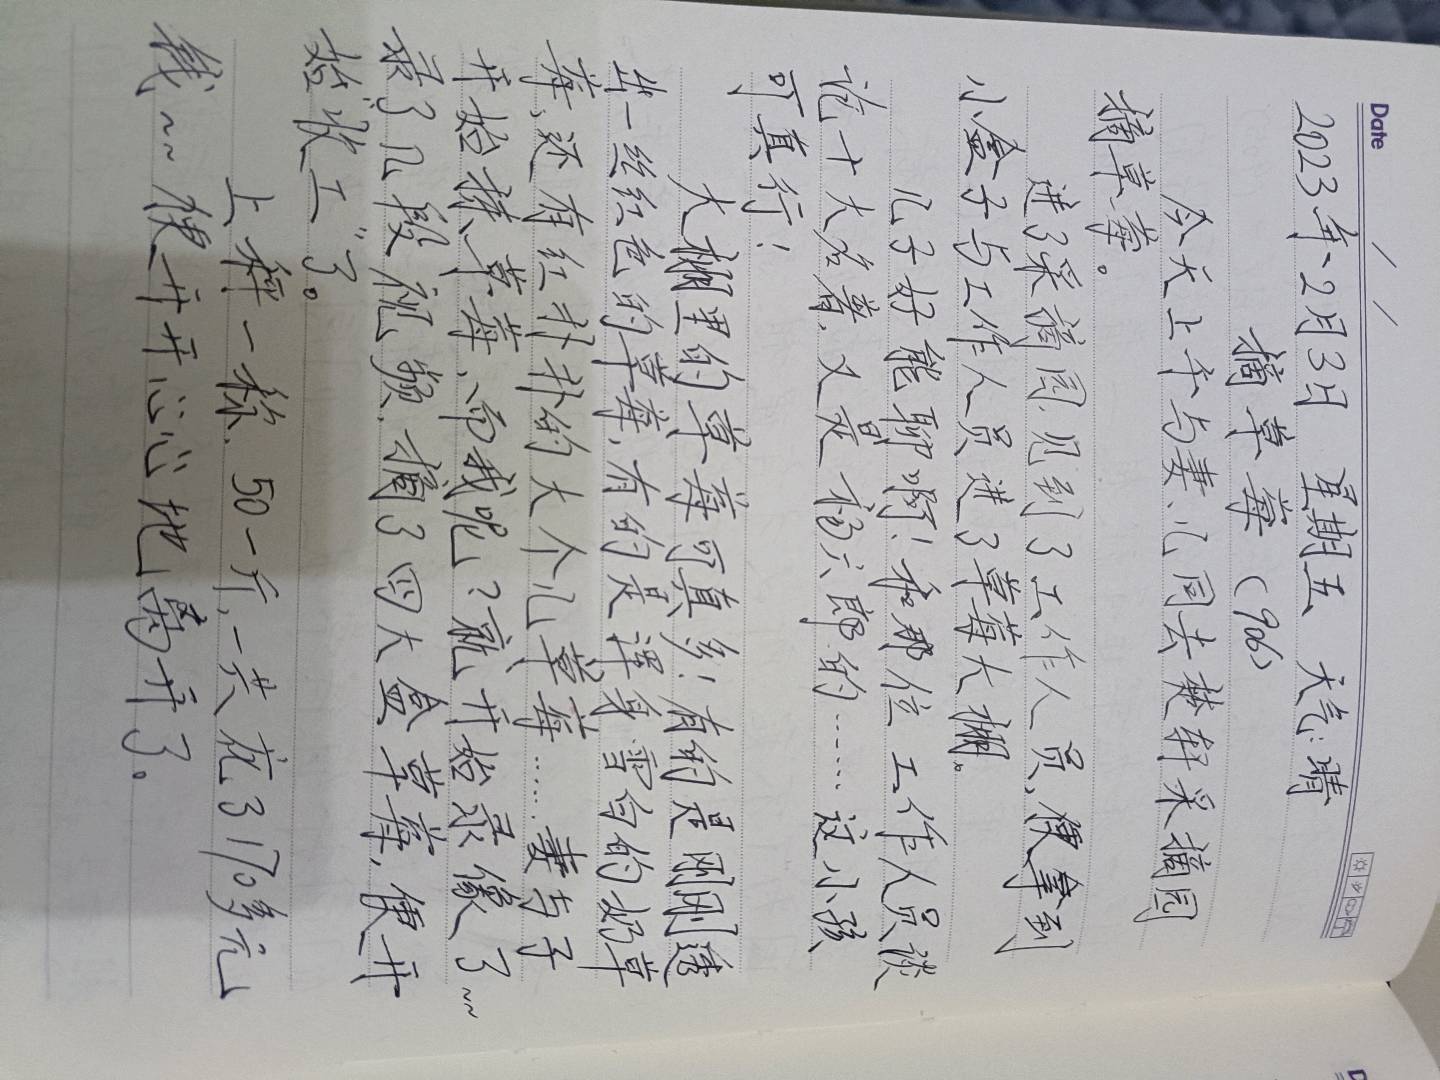 Date
2023年2月3日 星期五 天气:晴
摘草莓(906)
今天上午与妻、儿同去楚轩采摘园
摘草莓。
进了采摘园,见到了工作人员,便拿到
小盒子与工作人员进了草莓大棚。
儿子好能聊啊!和那位工作人员谈
论十大名著,又是杨六郎的……这小孩
可真行!
大棚里的草莓可真多!有的是刚刚透
出一丝红色的草莓,有的是浑身雪白的奶草
莓,还有红扑扑的大个儿草莓……妻与子
开始摘草莓,而我呢?就开始录像了~~
录了几段视频,摘了四大盒草莓,便开
始“收工”了。
上秤一称,50一斤,一共花了170多元
钱~~便开开心心地离开了。